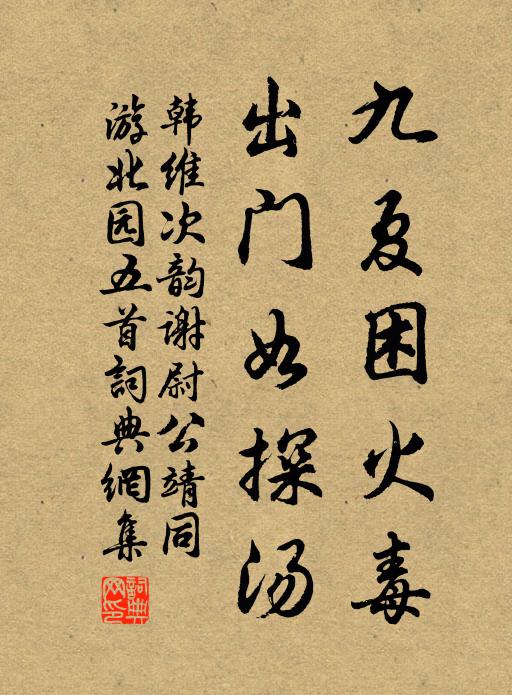 九夏困火毒
出门如探汤
韩维次韵谢尉公靖同
游北园五首詞典網集
詞典网印